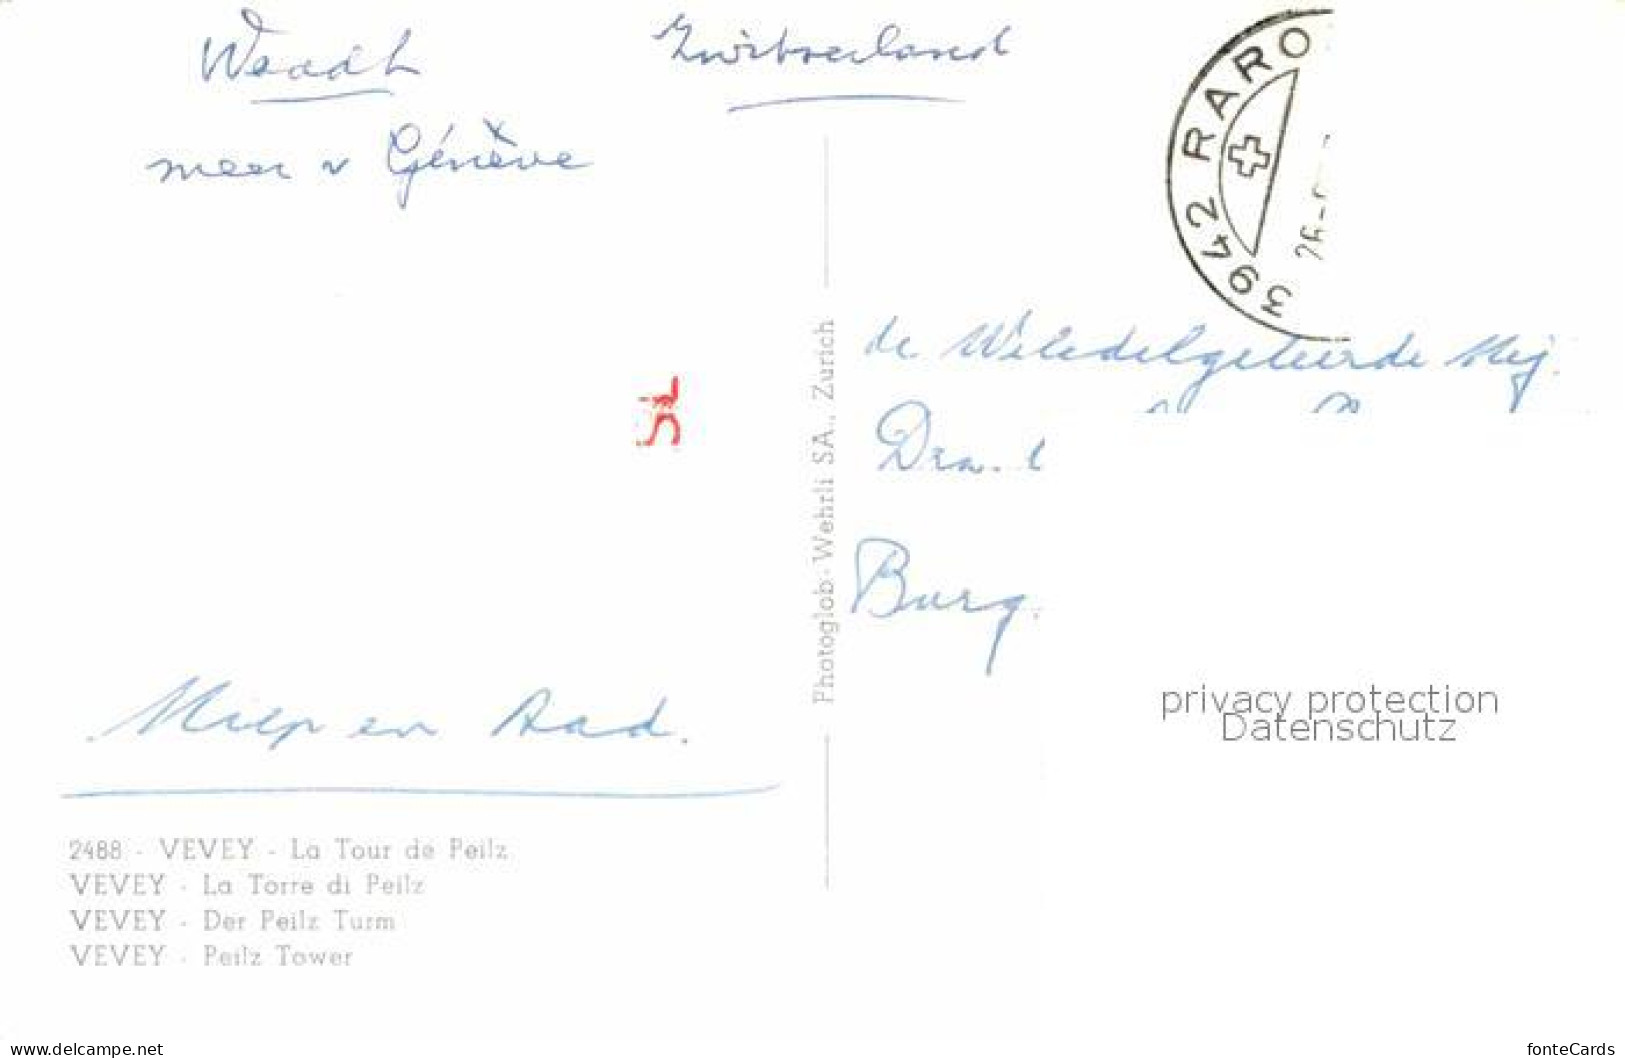 Waadt
Zwitserland
meer v Génève
3942 RARO
26-
de Weledelgeleerde Mej.
Dra.
Burg.
Miep en Aad.
2488 - VEVEY - La Tour de Peilz
VEVEY - La Torre di Peilz
VEVEY - Der Peilz Turm
VEVEY - Peilz Tower
Photoglob-Wehrli SA., Zurich
privacy protection
Datenschutz
www.delcampe.net
fonteCards